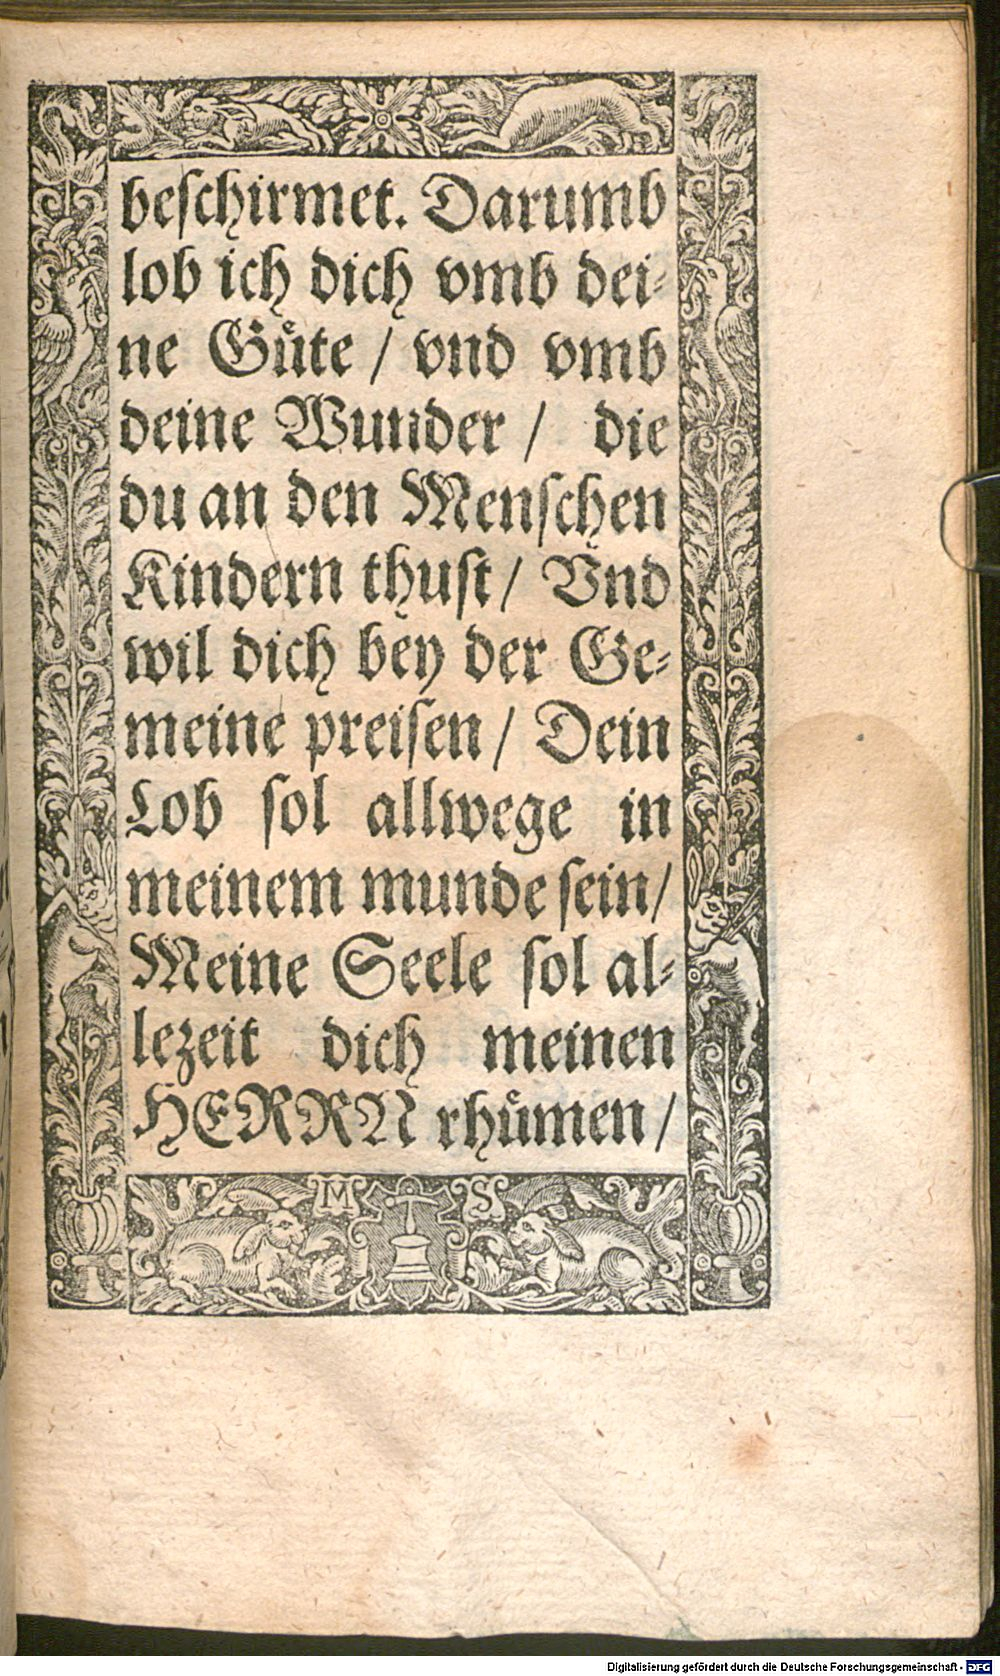 beſchirmet. Darumb
lob ich dich vmb dei⸗
ne Guͤte / vnd vmb
deine Wunder / die
du an den Menſchen
Kindern thuſt / Vnd
wil dich bey der Ge⸗
meine preiſen / Dein
Lob ſol allwege in
meinem munde ſein /
Meine Seele ſol al⸗
lezeit dich meinen
HERRN rhuͤmen /
M S
Digitalisierung gefördert durch die Deutsche Forschungsgemeinschaft - DFG